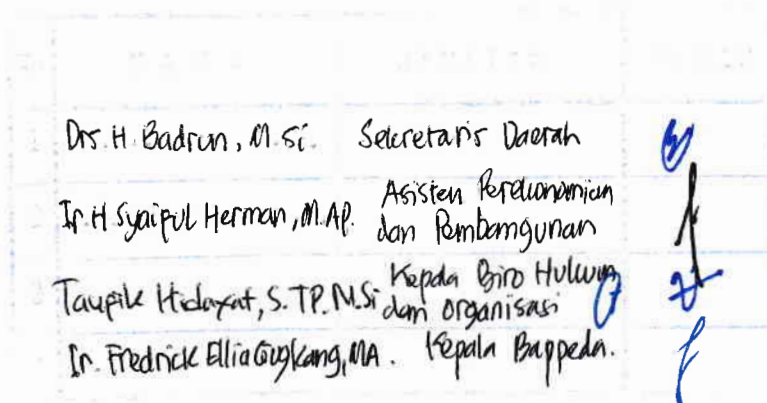 Drs. H. Badrun, M.Si. Sekretaris Daerah
Ir. H Syaipul Herman, M.AP. Asisten Perekonomian
dan Pembangunan
Taupik Hidayat, S.TP. M.Si Kepala Biro Hukum
dan organisasi
Ir. Fredrick Ellia Gugkang, MA. Kepala Bappeda.